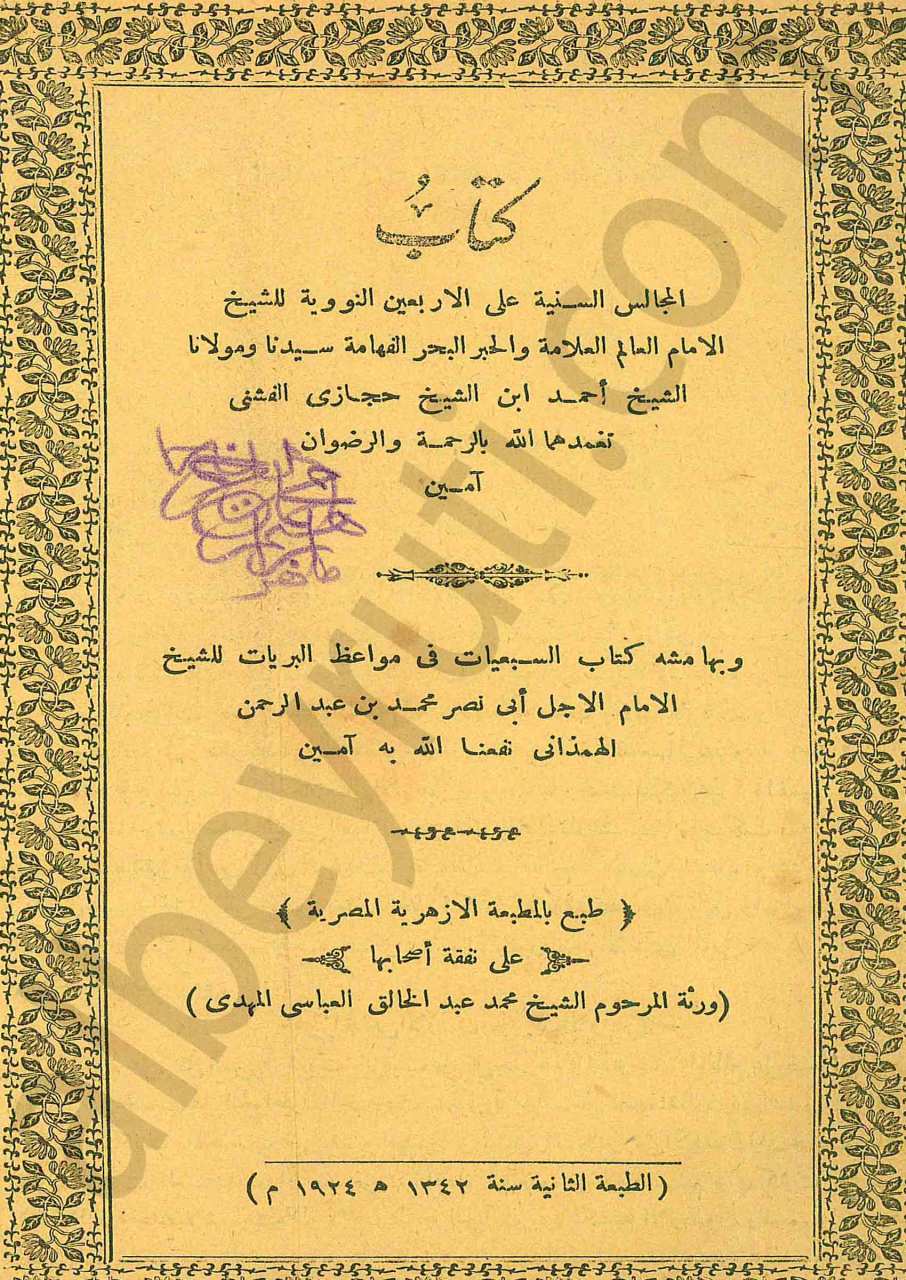 كتابُ
المجالس السنية على الاربعين النووية للشيخ
الامام العالم العلامة والحبر البحر الفهامة سيدنا ومولانا
الشيخ أحمد ابن الشيخ حجازى الفشنى
تغمدهما الله بالرحمة والرضوان
آمين
وبهامشه كتاب السبعيات فى مواعظ البريات للشيخ
الامام الاجل أبى نصر محمد بن عبد الرحمن
الهمذانى نفعنا الله به آمين
﴿ طبع بالمطبعة الازهرية المصرية ﴾
على نفقة أصحابها
(ورثة المرحوم الشيخ محمد عبد الخالق العباسى المهدى)
(الطبعة الثانية سنة ١٣٤٢ ه ١٩٢٤ م)
albeyruti.com